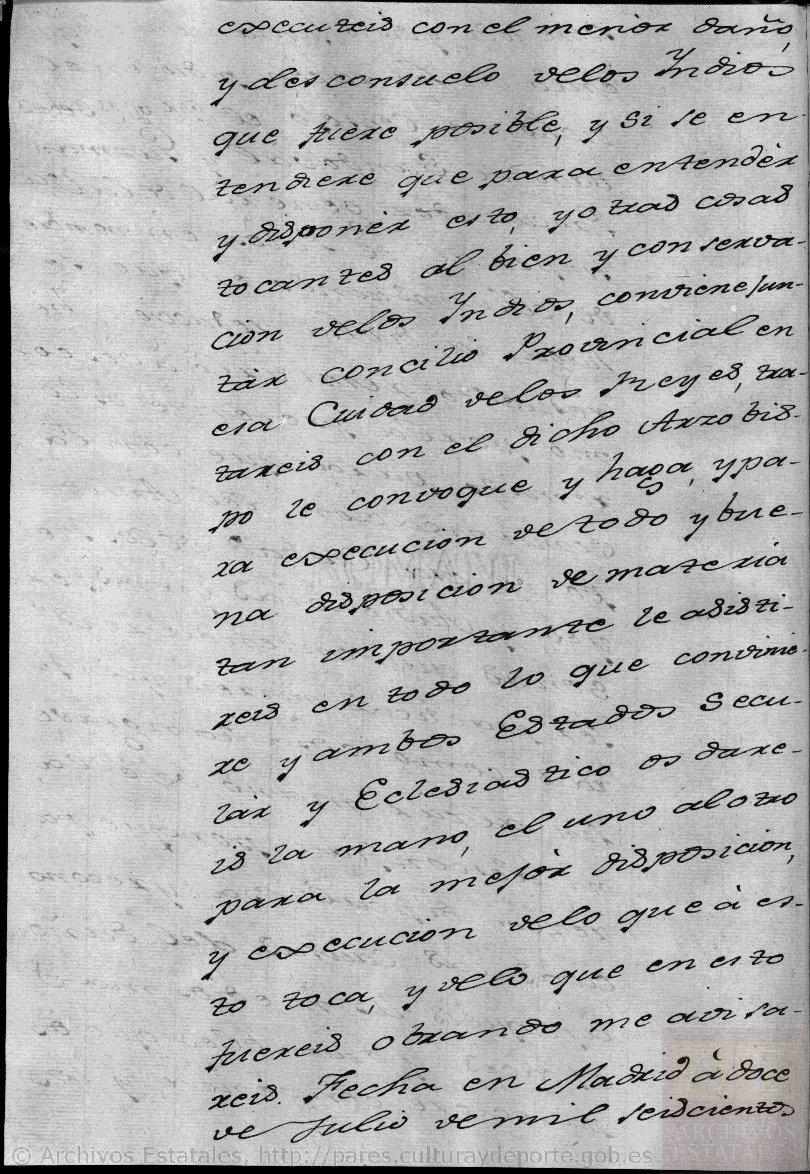 executeis con el menór daño,
y desconsuelo delos Indios
que fuere posible, y si se en-
tendiere que para entendér
y disponér esto, y otras cosas
tocantes al bien y conserva-
cion delos Indios, conviene jun-
tár concilio Provincial en
esa Cuidad delos Reyes, tra-
tareis con el dicho Arzobis-
po le convoque y haga, y pa-
ra execucion de todo y bue-
na disposicion de materia
tan importante le asisti-
reis en todo lo que convinie-
re y ambos Estados Secu-
lár y Eclesiastico os dare-
is la mano, el uno al otro
para la mejór disposicion,
y execucion delo que à es-
to toca, y delo que en esto
fuereis obrando me avisa-
reis. Fecha en Madrid à doce
de Julio de mil seiscientos
© Archivos Estatales, http://pares.culturaydeporte.gob.es